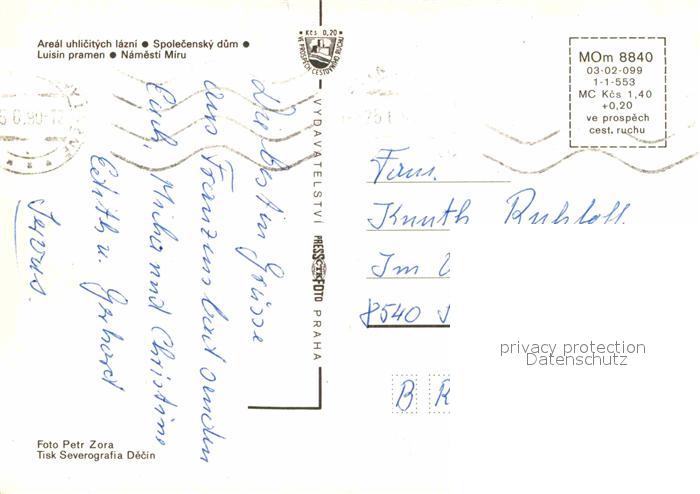 Areál uhličitých lázní ● Společenský dům ●
Luisin pramen ● Náměstí Míru
Kčs 0,20
VE PROSPĚCH CESTOVNÍHO RUCHU
MOm 8840
03-02-099
1-1-553
MC Kčs 1,40
+0,20
ve prospěch
cest. ruchu
VYDAVATELSTVÍ PRESSFOTO PRAHA
Die besten Grüsse
aus Franzensbad senden
Euch, Micha und Christine
Edith u. Gerhard
Servus.
Fam.
Knuth
Im
8540
B R
privacy protection
Datenschutz
Foto Petr Zora
Tisk Severografia Děčín